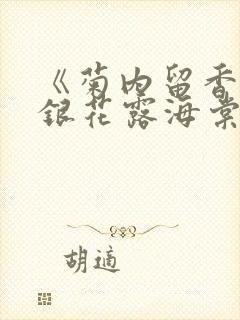 《菊内留香
银花露海棠
胡適